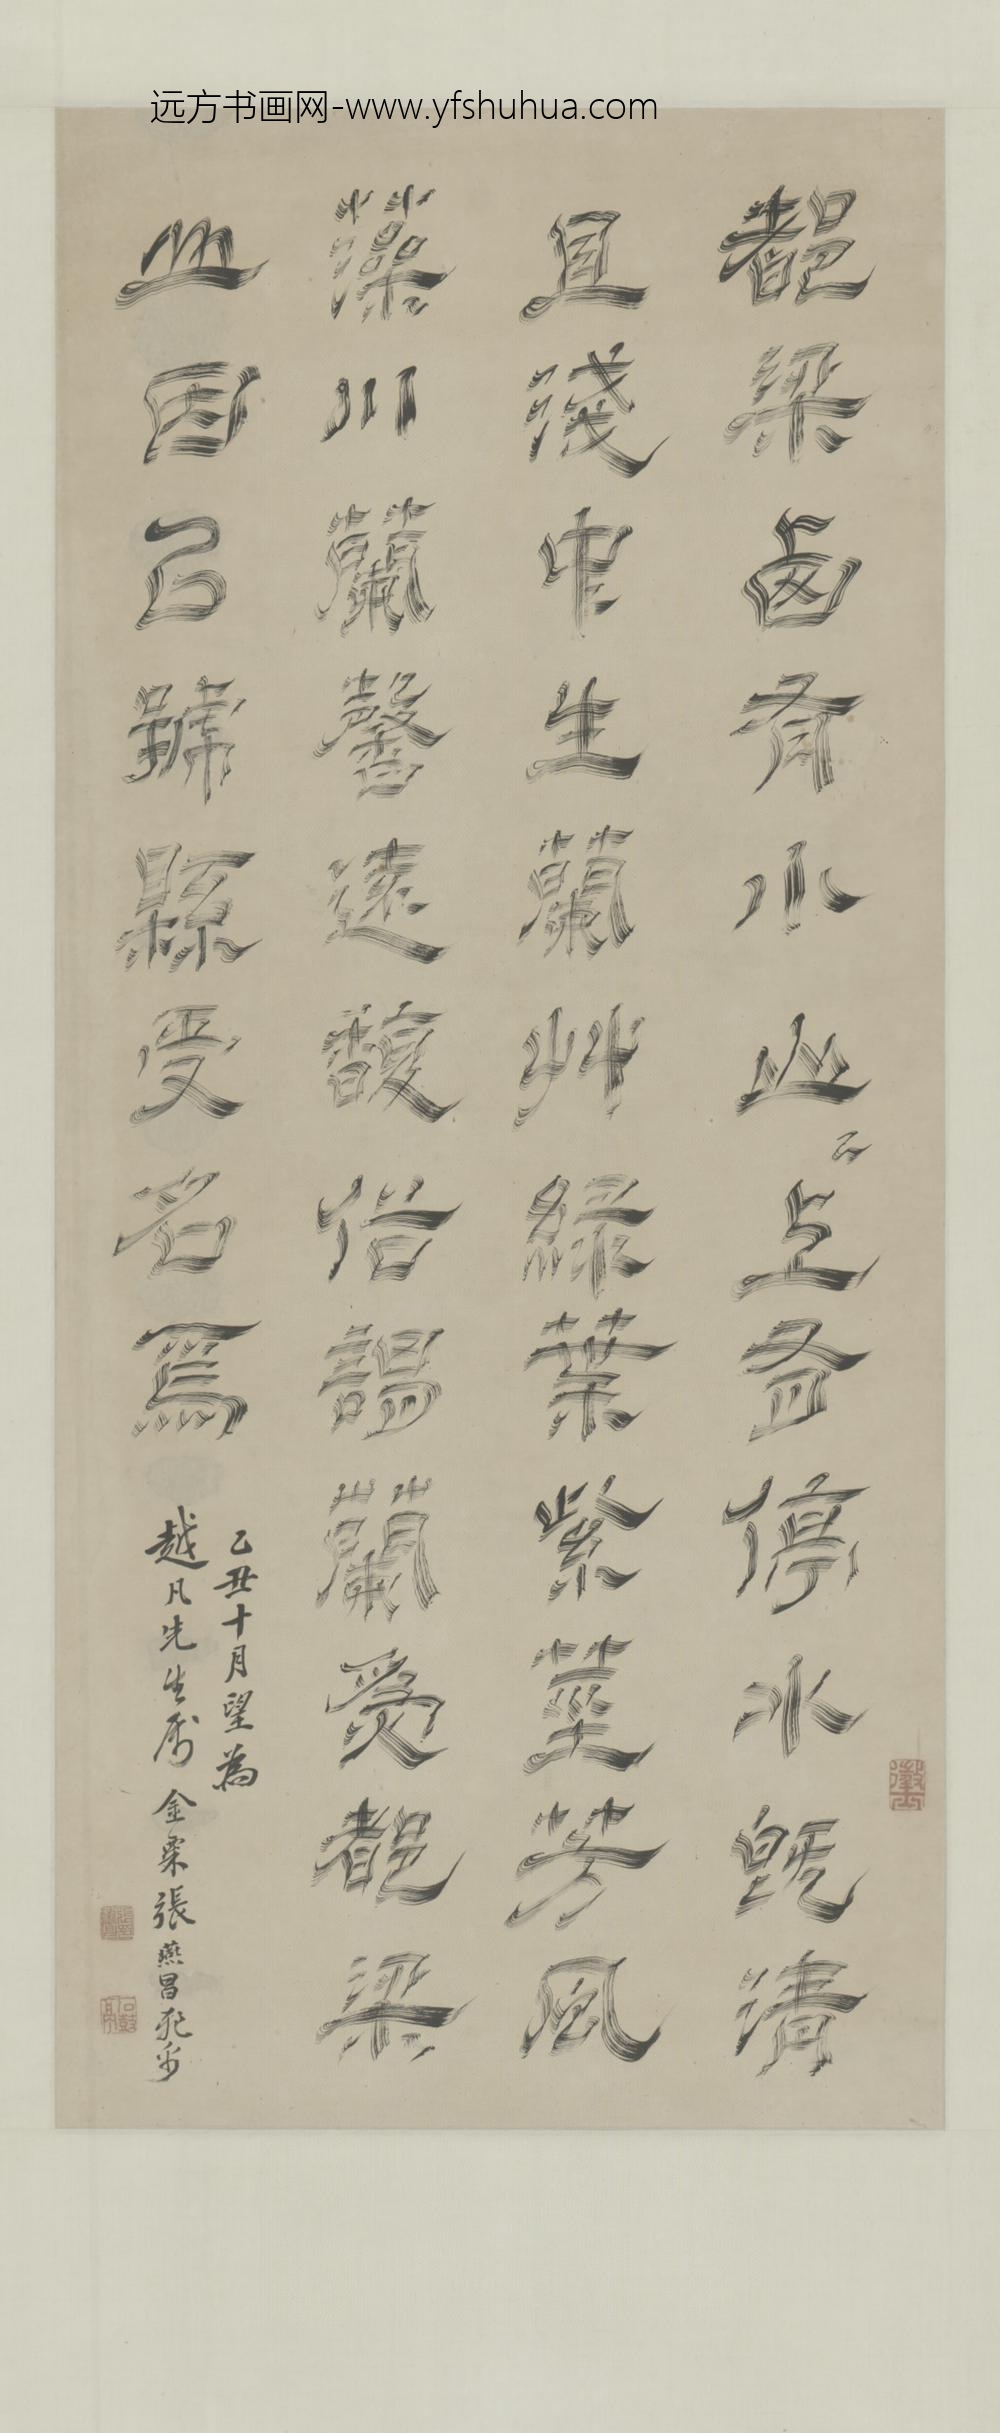 远方书画网-www.yfshuhua.com
都梁西有小山〻上有停水既清
且淺中生蘭艸綠葉紫莖芳風
藻川蘭馨遠馥俗謂蘭爲都梁
山因已號縣受名焉
乙丑十月望為
越凡先生属 金粟張燕昌飛帛
石鼓亭